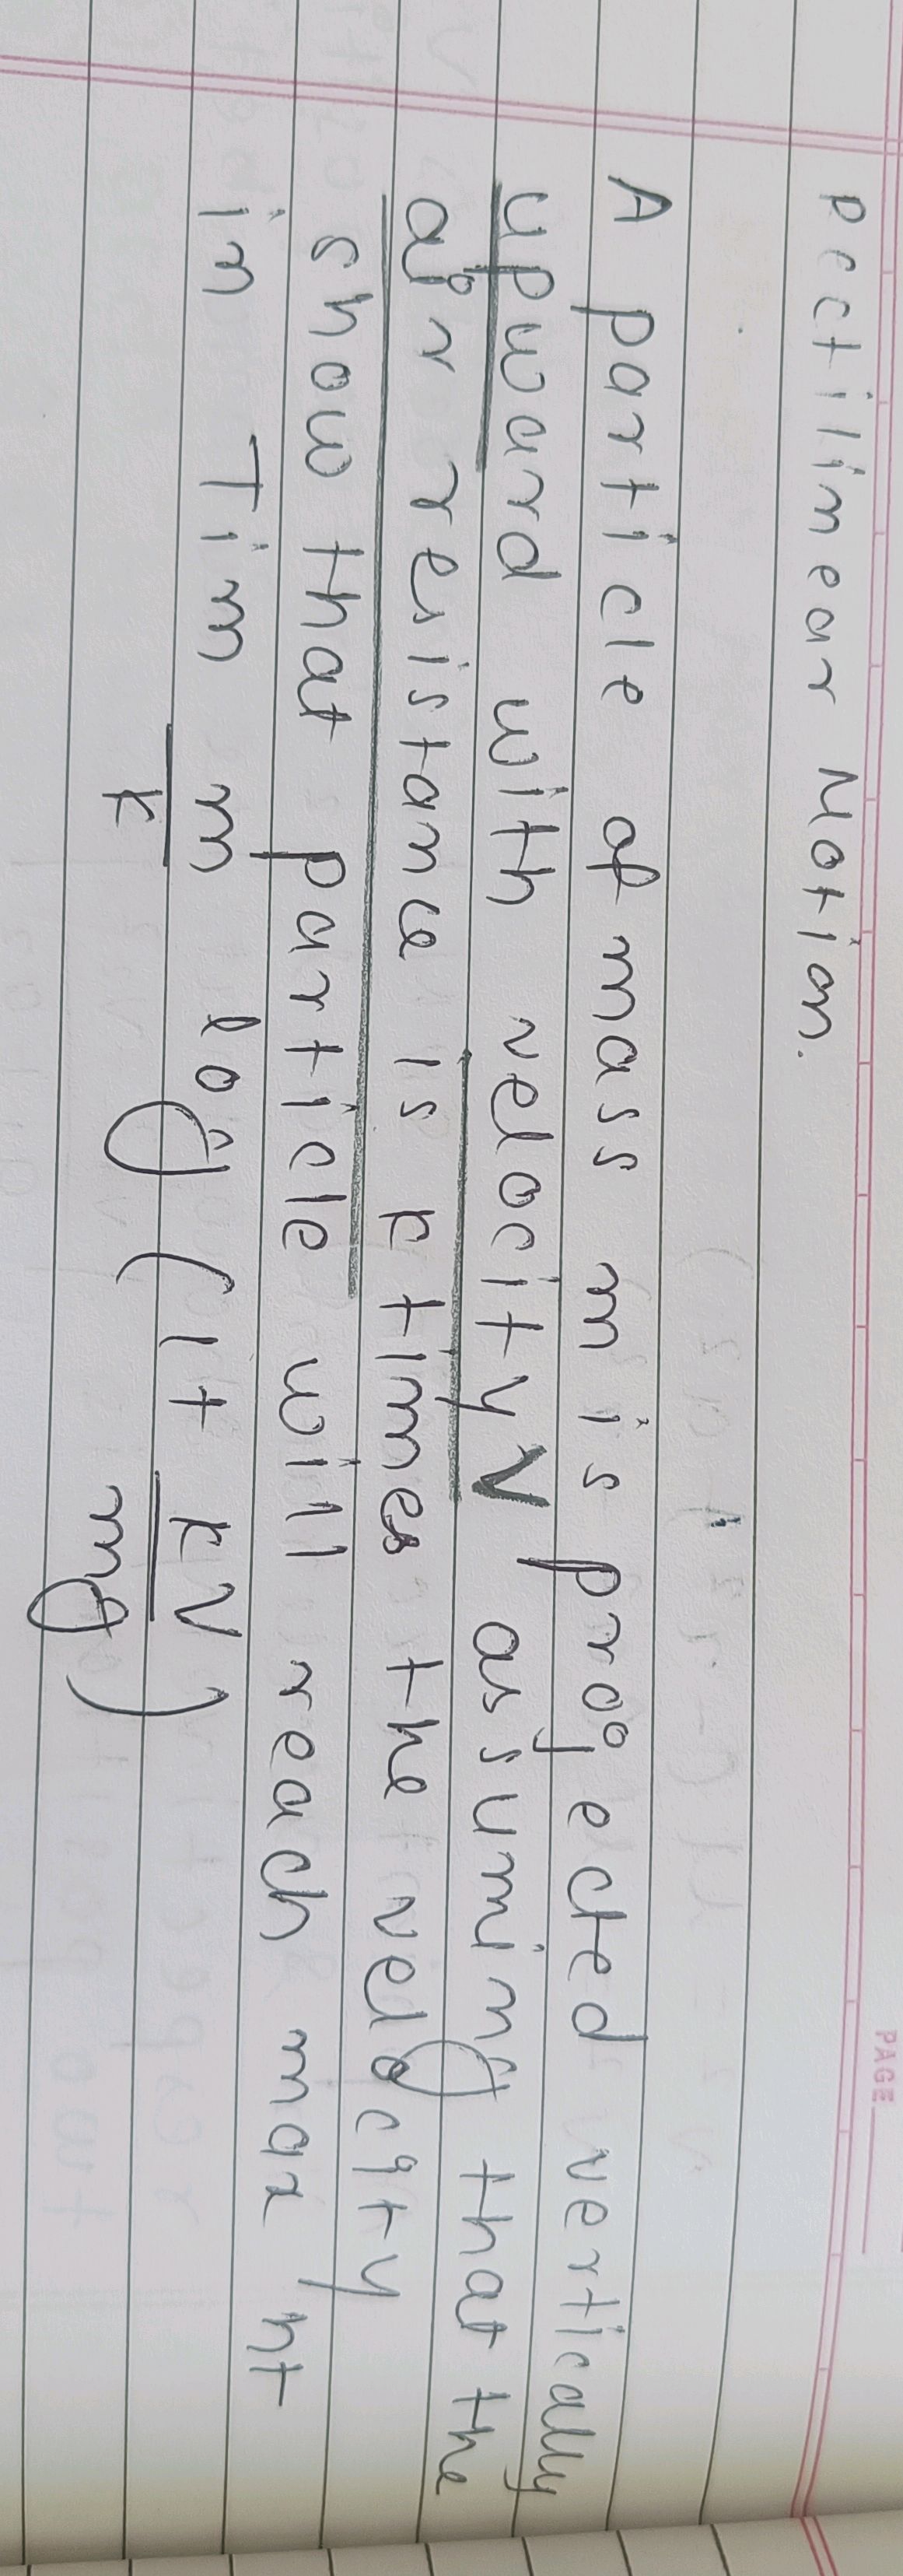 Rectilinear Motion.
PAGE
A particle of mass m is projected vertically
upward with velocity V assuming that the
air resistance is k times the velocity
show that particle will reach max ht
in Tim m/k log (1+ kV/mg)